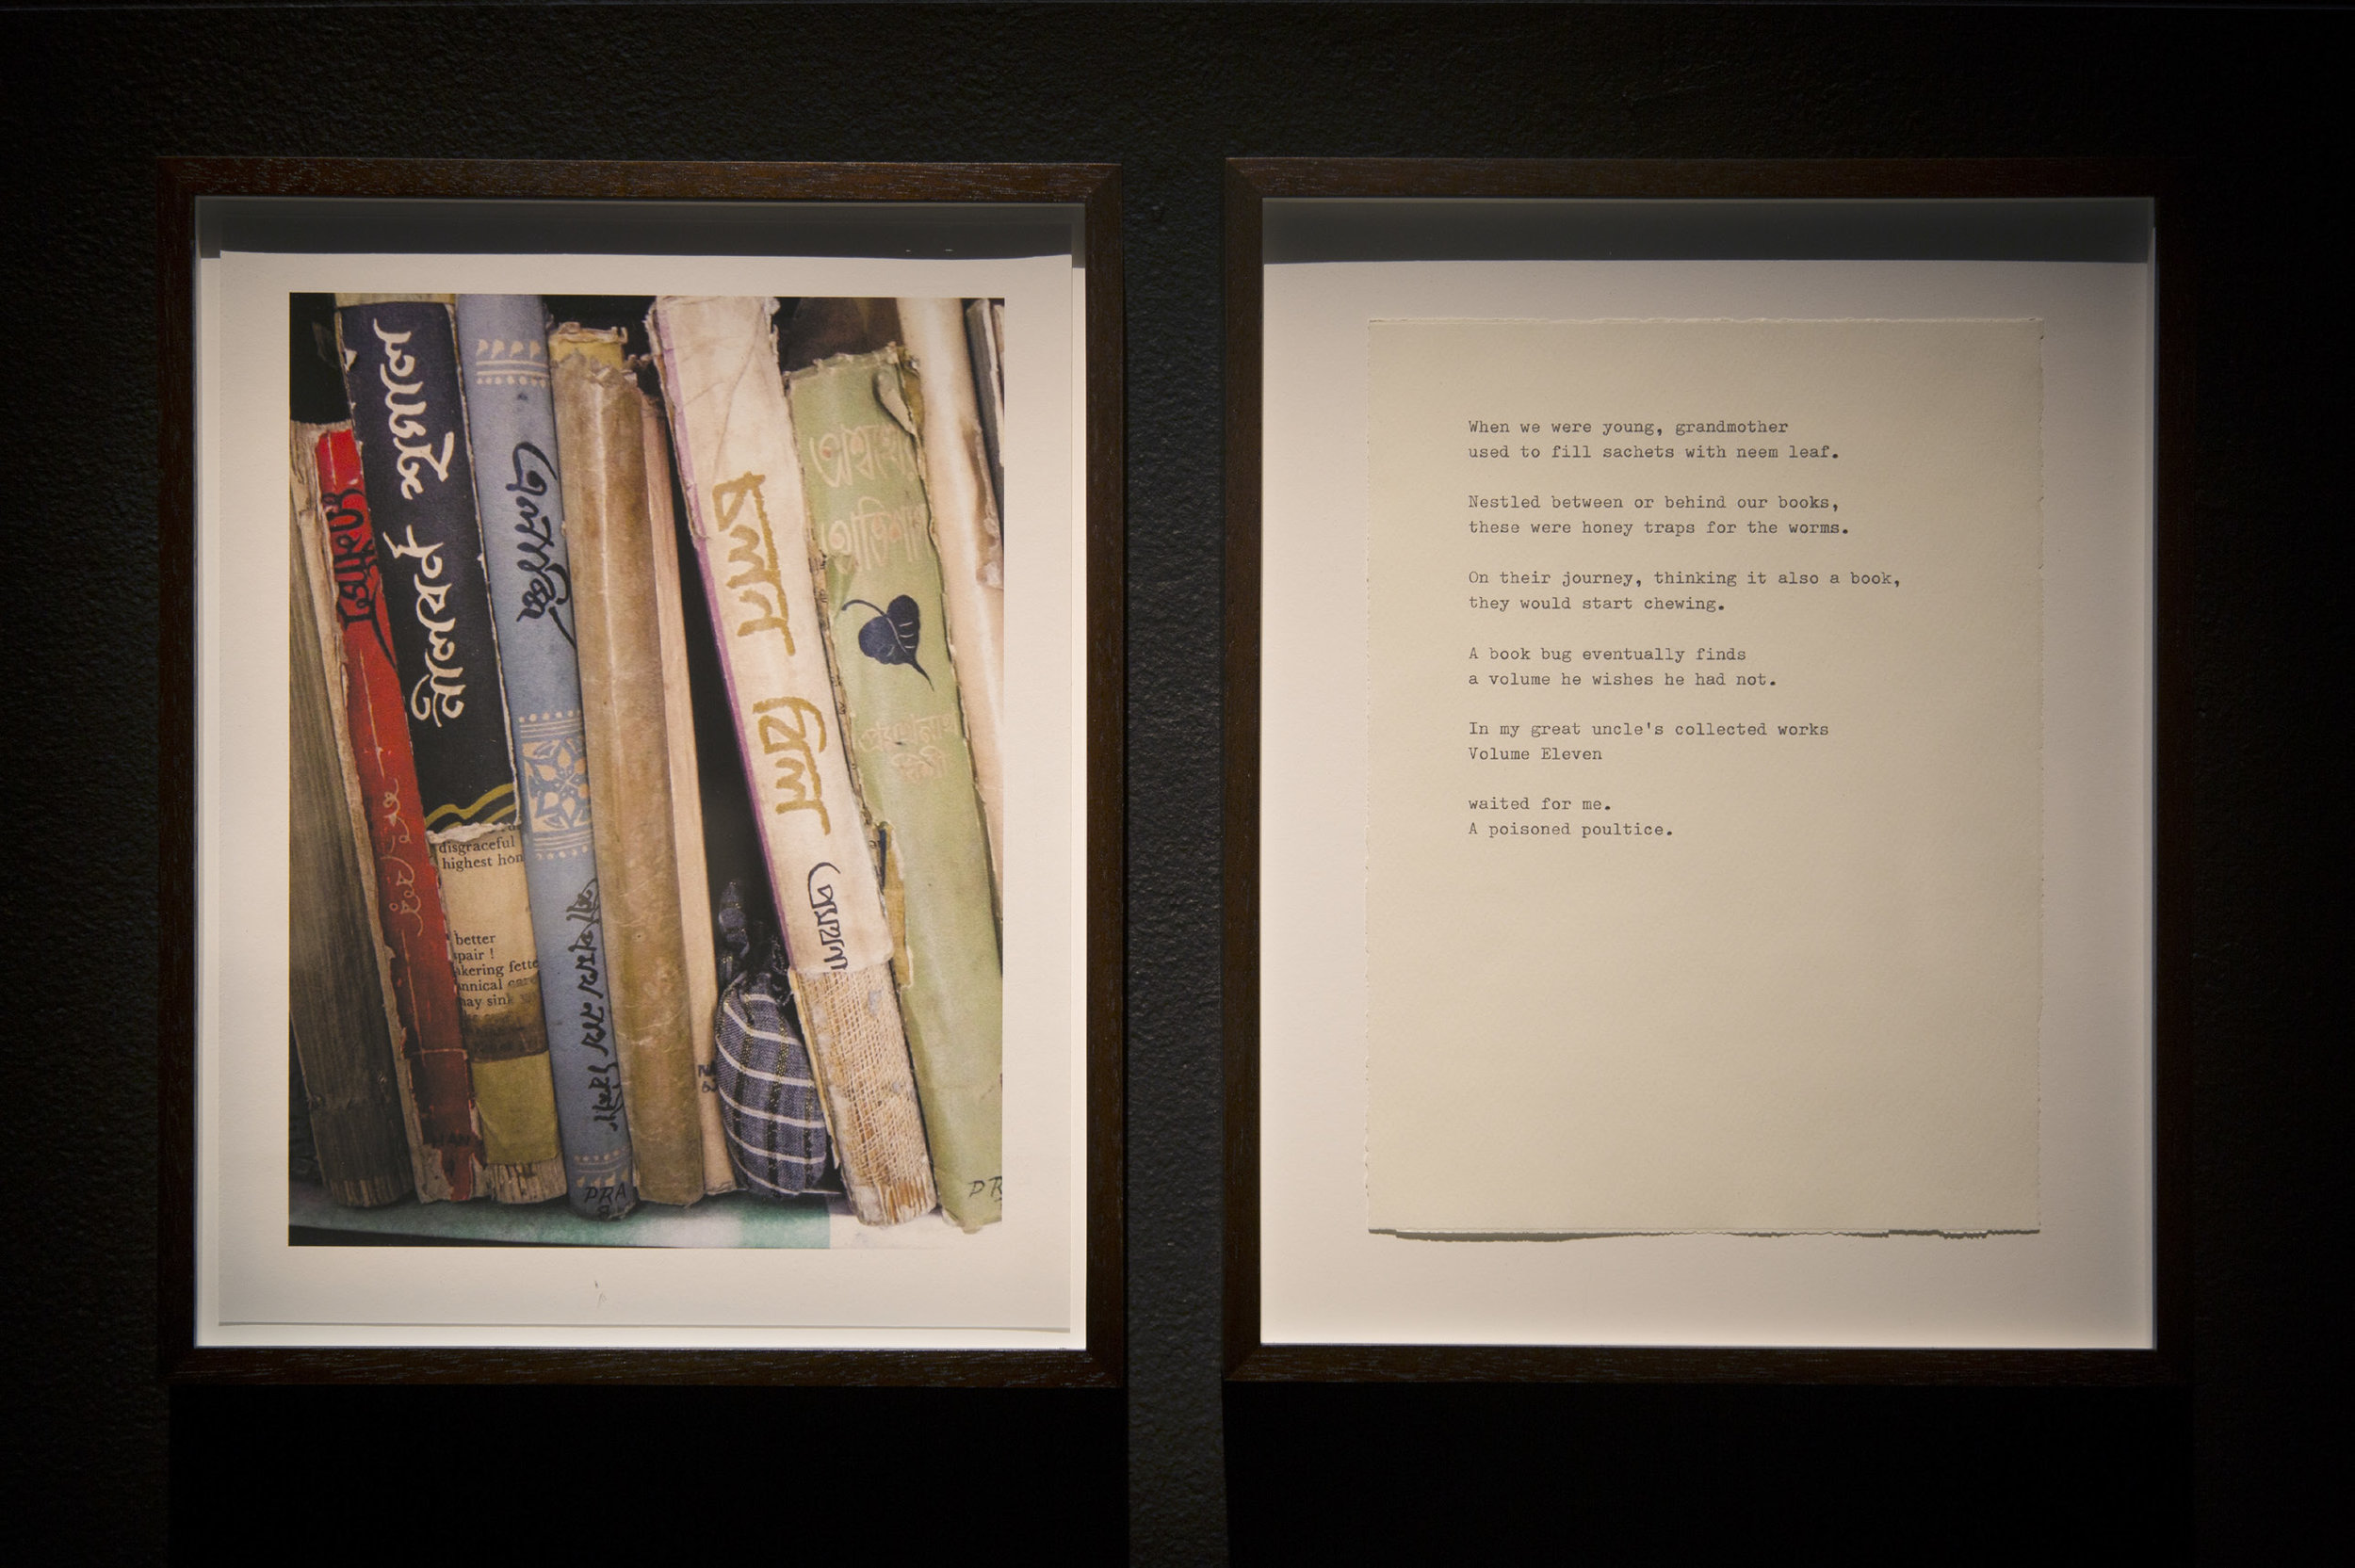 নীলবর্ণ শৃগাল
চলন বিল
disgraceful
highest hon
better
pair !
akering fette
annical care
may sink
PRA
PR
When we were young, grandmother
used to fill sachets with neem leaf.
Nestled between or behind our books,
these were honey traps for the worms.
On their journey, thinking it also a book,
they would start chewing.
A book bug eventually finds
a volume he wishes he had not.
In my great uncle's collected works
Volume Eleven
waited for me.
A poisoned poultice.